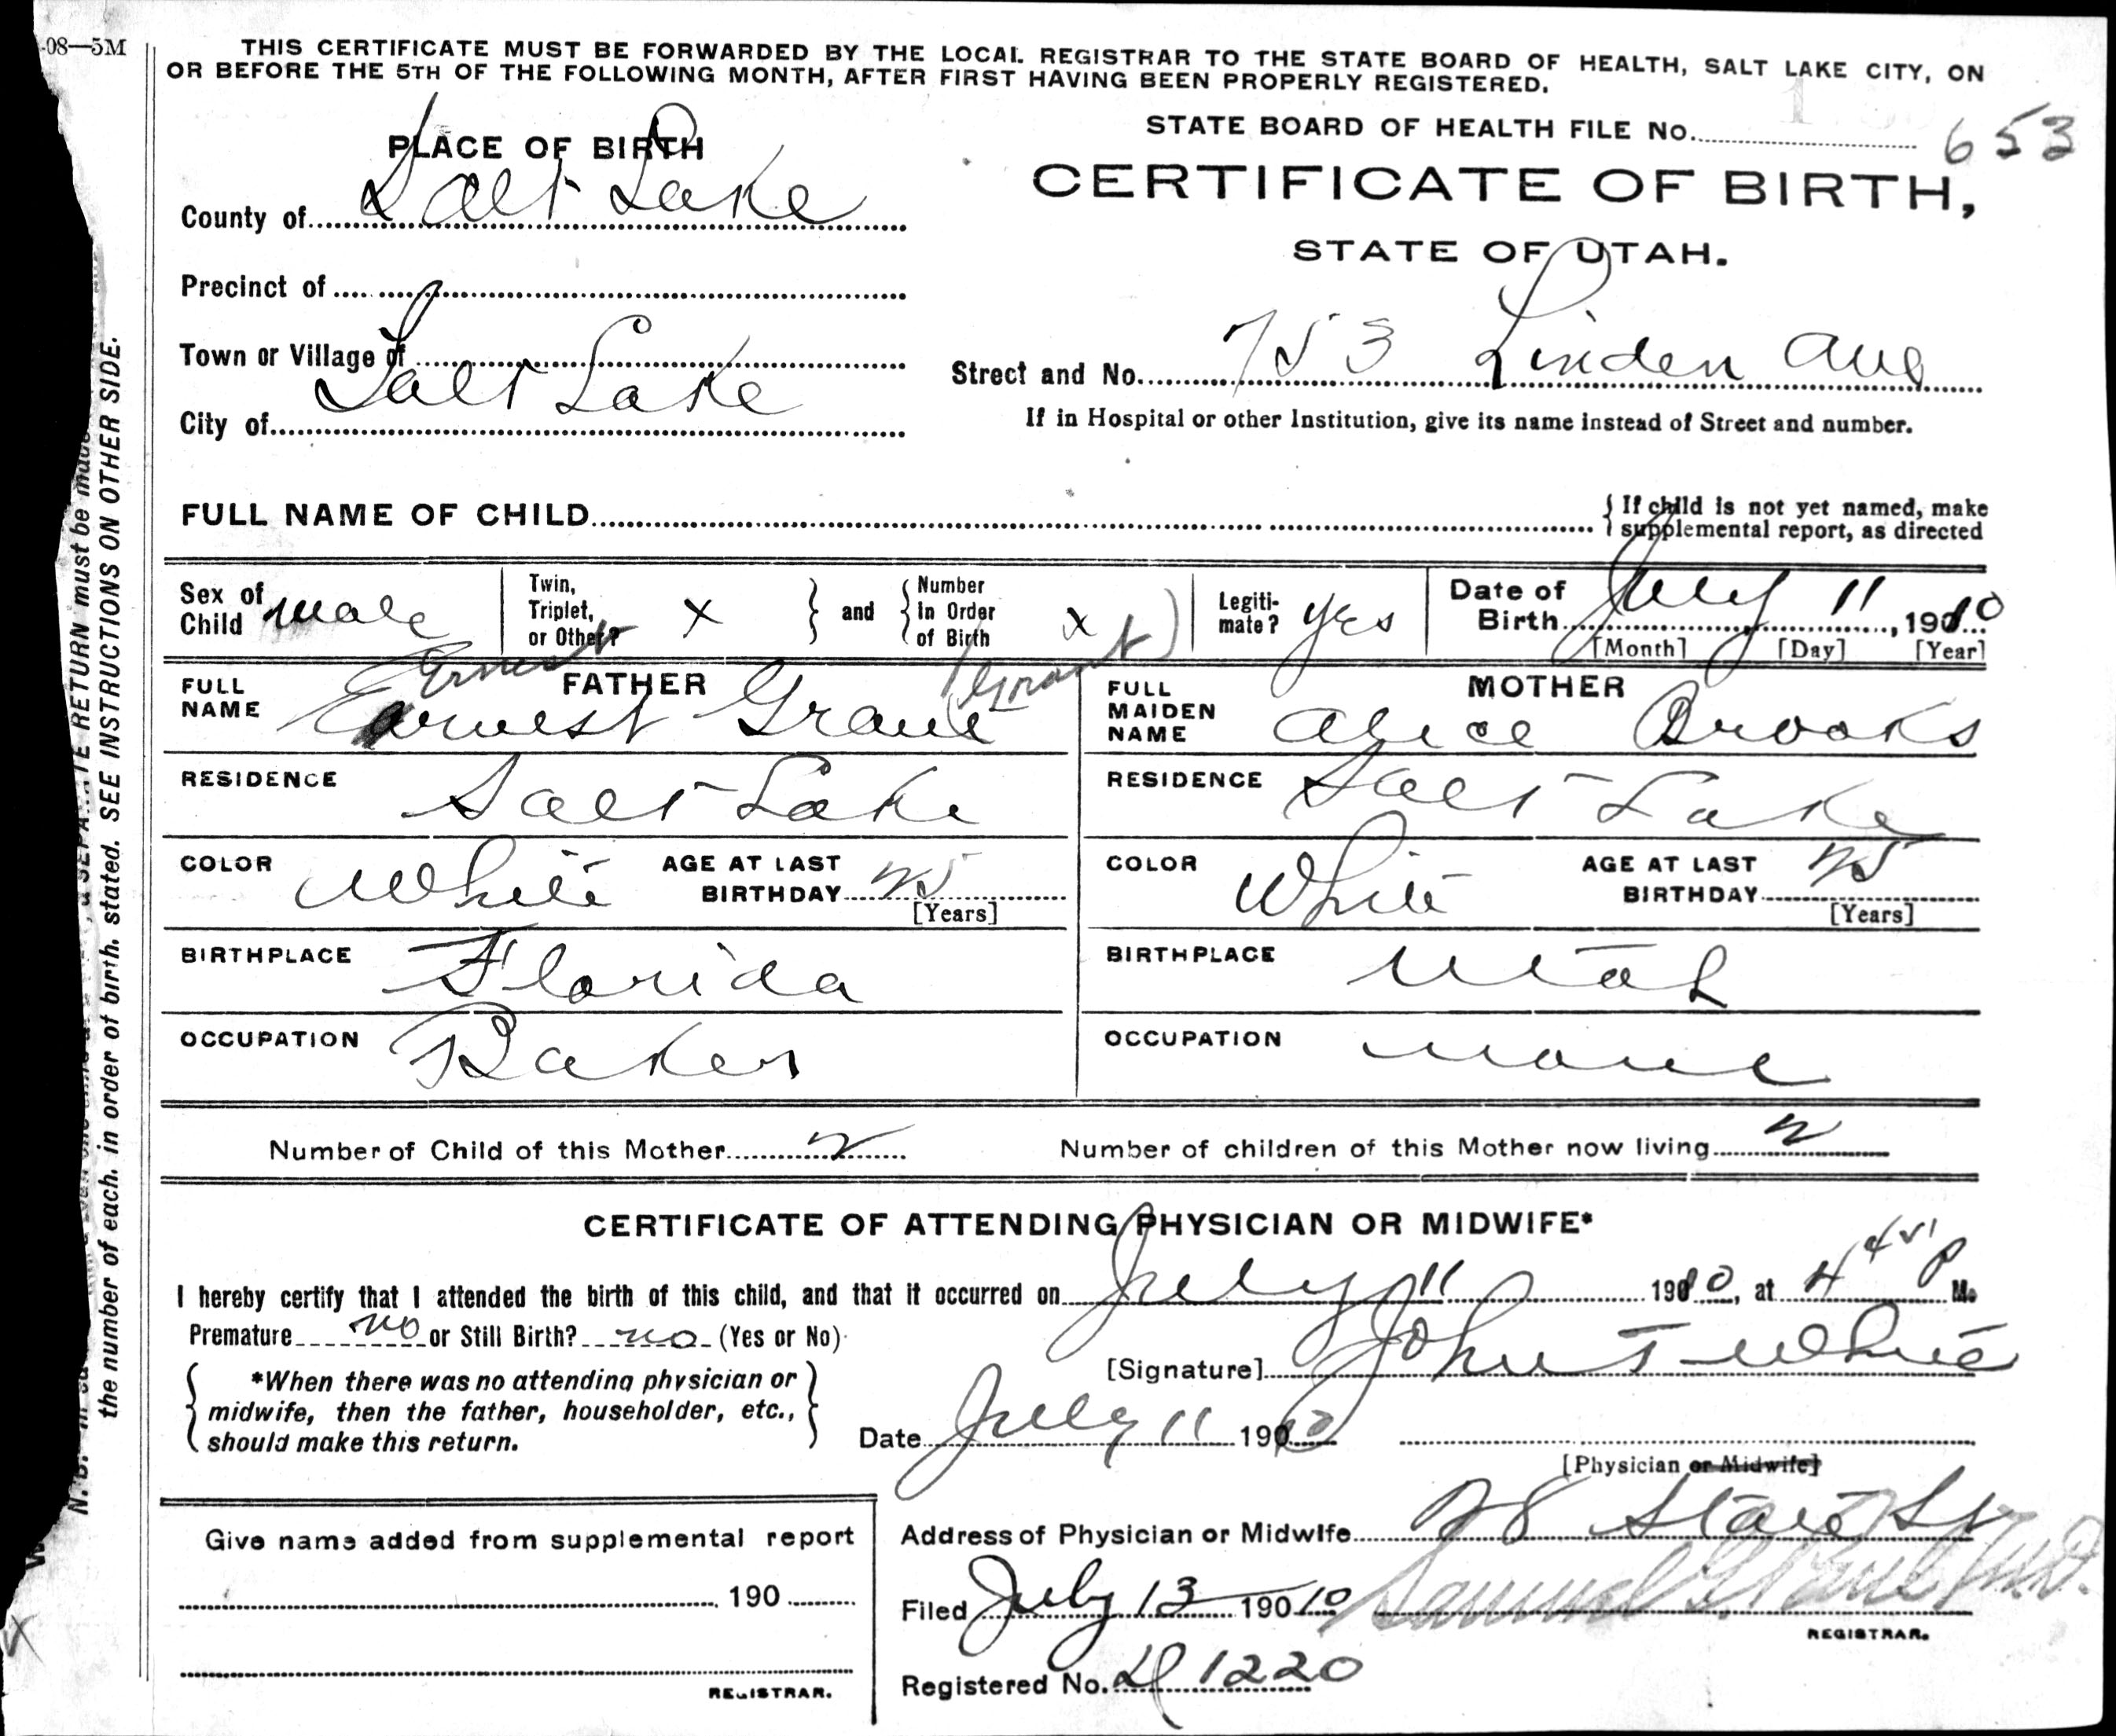 -08—5M
THIS CERTIFICATE MUST BE FORWARDED BY THE LOCAL REGISTRAR TO THE STATE BOARD OF HEALTH, SALT LAKE CITY, ON
OR BEFORE THE 5TH OF THE FOLLOWING MONTH, AFTER FIRST HAVING BEEN PROPERLY REGISTERED.
STATE BOARD OF HEALTH FILE No. 653
PLACE OF BIRTH
CERTIFICATE OF BIRTH,
STATE OF UTAH.
County of Salt Lake
Precinct of
Town or Village of
City of Salt Lake
Street and No. 753 Linden Ave
If in Hospital or other Institution, give its name instead of Street and number.
FULL NAME OF CHILD
{ If child is not yet named, make
supplemental report, as directed
Sex of Child male
Twin, Triplet, or Other? x } and { Number in Order of Birth x
Legiti-mate? yes
Date of Birth July 11, 1910
[Month] [Day] [Year]
FATHER
Ernest (Grant)
FULL NAME Earnest Grant
MOTHER
FULL MAIDEN NAME Alice Brooks
RESIDENCE Salt Lake
RESIDENCE Salt Lake
COLOR White AGE AT LAST BIRTHDAY 25 [Years]
COLOR White AGE AT LAST BIRTHDAY 25 [Years]
BIRTHPLACE Florida
BIRTHPLACE Utah
OCCUPATION Baker
OCCUPATION none
Number of Child of this Mother 2 Number of children of this Mother now living 2
CERTIFICATE OF ATTENDING PHYSICIAN OR MIDWIFE*
I hereby certify that I attended the birth of this child, and that it occurred on July 11 1910, at 4 45 P M.
Premature no or Still Birth? no (Yes or No)
[Signature] John T White
{ *When there was no attending physician or
midwife, then the father, householder, etc.,
should make this return. }
Date July 11 1910
[Physician or Midwife]
Address of Physician or Midwife 28 State St
Give name added from supplemental report
190
REGISTRAR.
Filed July 13 190 10 Samuel G. Paul M.D.
REGISTRAR.
Registered No. 1220
the number of each, in order of birth, stated. SEE INSTRUCTIONS ON OTHER SIDE.
RETURN must be made